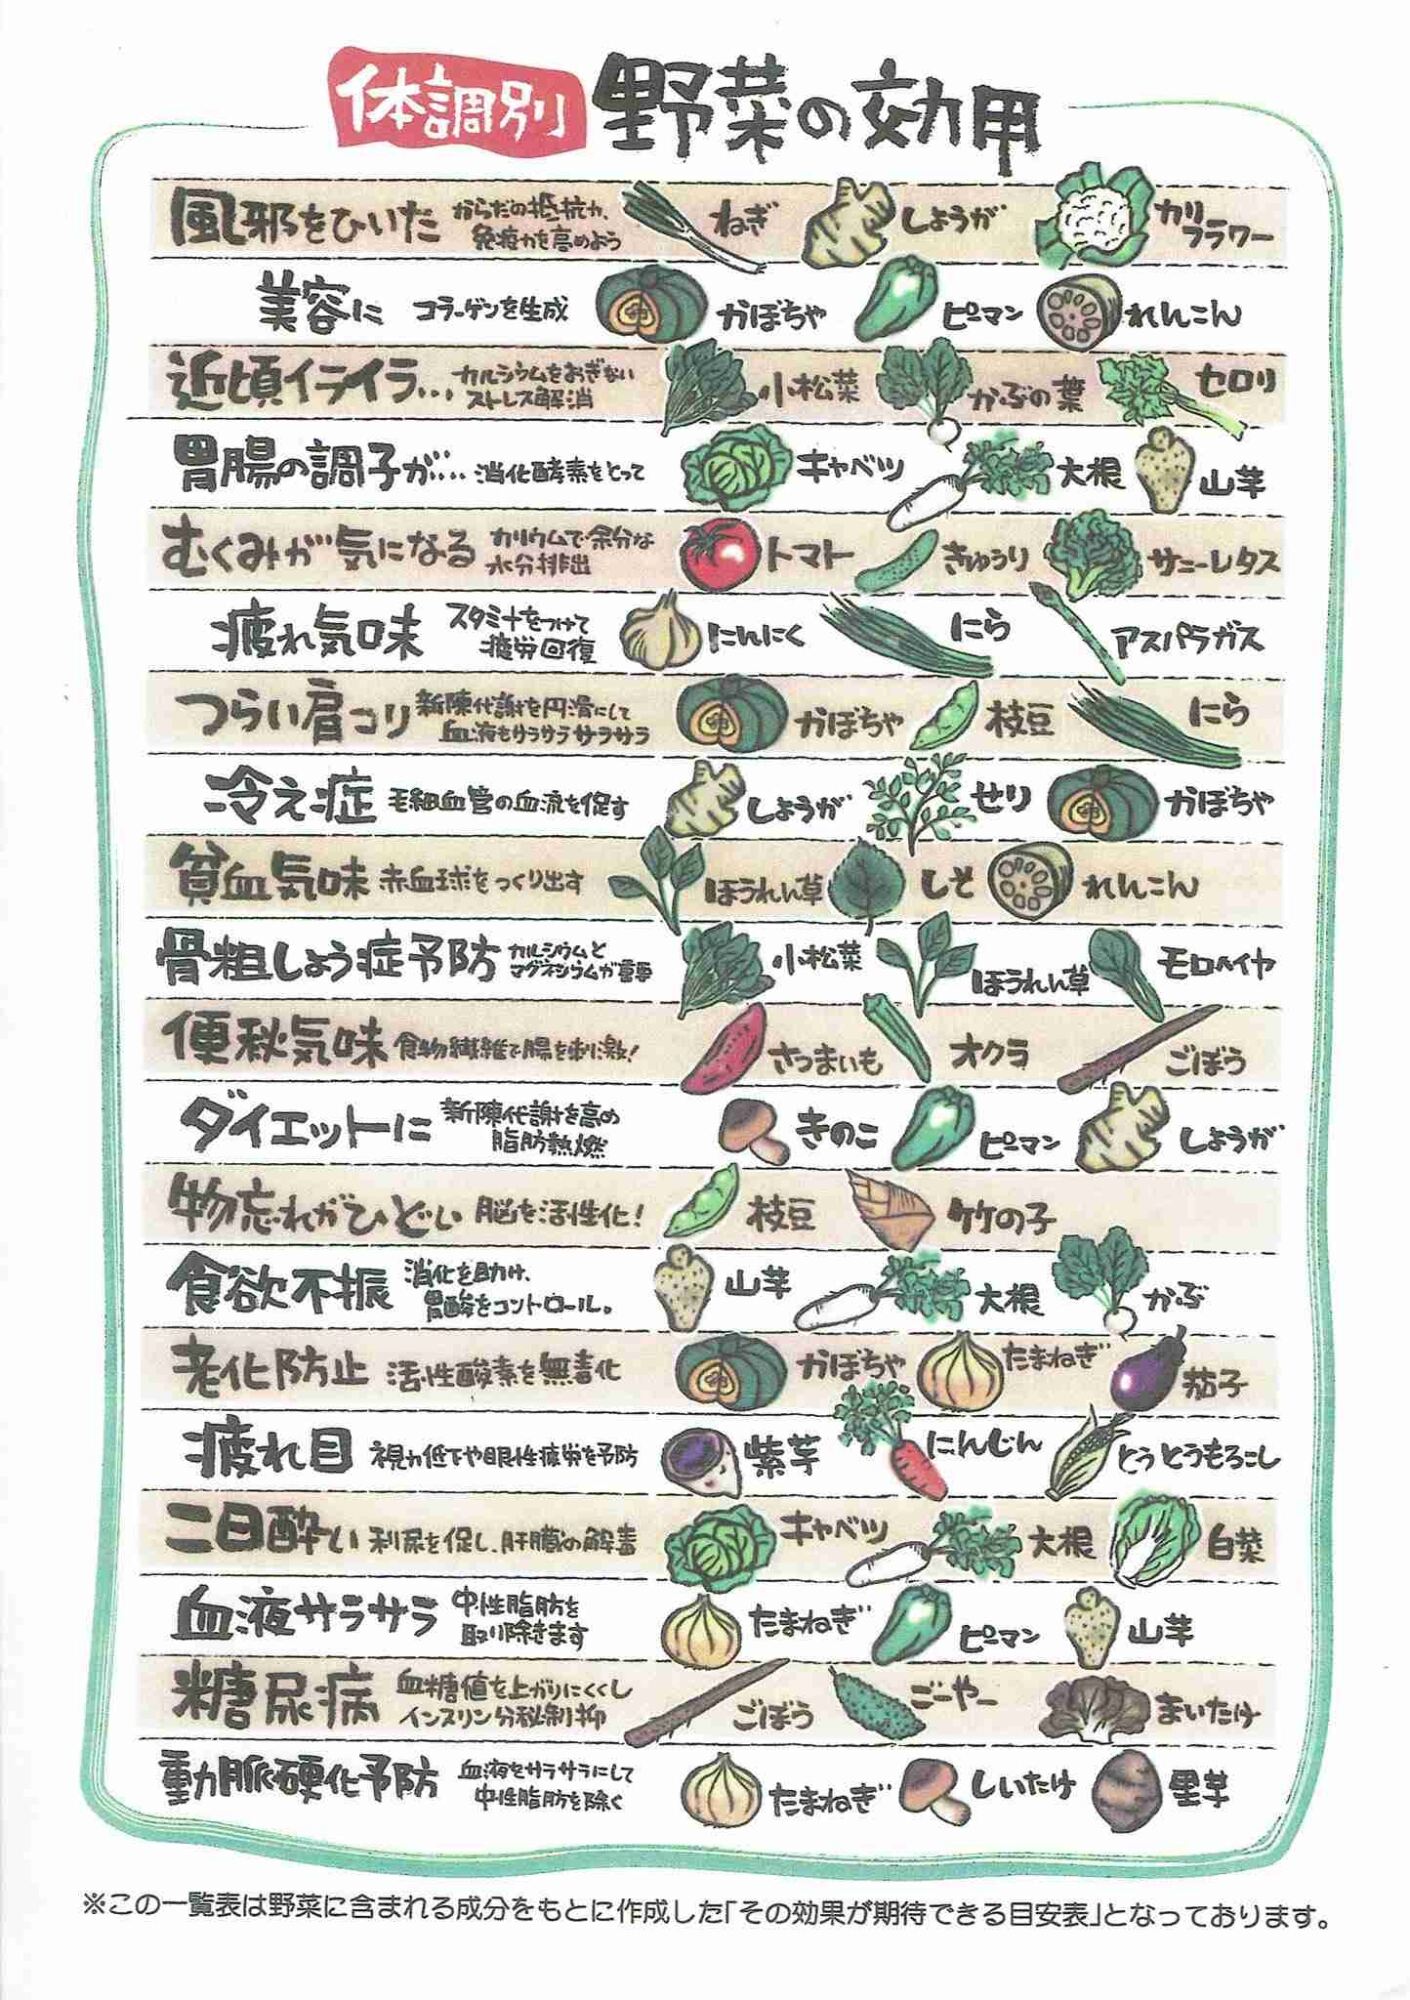 体調別 野菜の効用
風邪をひいた からだの抵抗力、免疫力を高めよう ねぎ しょうが カリフラワー
美容に コラーゲンを生成 かぼちゃ ピーマン れんこん
近頃イライラ… カルシウムをおぎないストレス解消 小松菜 かぶの葉 セロリ
胃腸の調子が… 消化酵素をとって キャベツ 大根 山芋
むくみが気になる カリウムで余分な水分排出 トマト きゅうり サニーレタス
疲れ気味 スタミナをつけて疲労回復 にんにく にら アスパラガス
つらい肩コリ 新陳代謝を円滑にして血液もサラサラサラサラ かぼちゃ 枝豆 にら
冷え症 毛細血管の血流を促す しょうが せり かぼちゃ
貧血気味 赤血球をつくり出す ほうれん草 しそ れんこん
骨粗しょう症予防 カルシウムとマグネシウムが重要 小松菜 ほうれん草 モロヘイヤ
便秘気味 食物繊維で腸を刺激! さつまいも オクラ ごぼう
ダイエットに 新陳代謝を高め脂肪熱燃 きのこ ピーマン しょうが
物忘れがひどい 脳を活性化! 枝豆 竹の子
食欲不振 消化を助け、胃酸をコントロール。 山芋 大根 かぶ
老化防止 活性酸素を無毒化 かぼちゃ たまねぎ 茄子
疲れ目 視力低下や眼性疲労を予防 紫芋 にんじん とうとうもろこし
二日酔い 利尿を促し、肝臓の解毒 キャベツ 大根 白菜
血液サラサラ 中性脂肪を取り除きます たまねぎ ピーマン 山芋
糖尿病 血糖値を上がりにくくしインスリン分秘制抑 ごぼう ごーやー まいたけ
動脈硬化予防 血液をサラサラにして中性脂肪を除く たまねぎ しいたけ 里芋
※この一覧表は野菜に含まれる成分をもとに作成した「その効果が期待できる目安表」となっております。